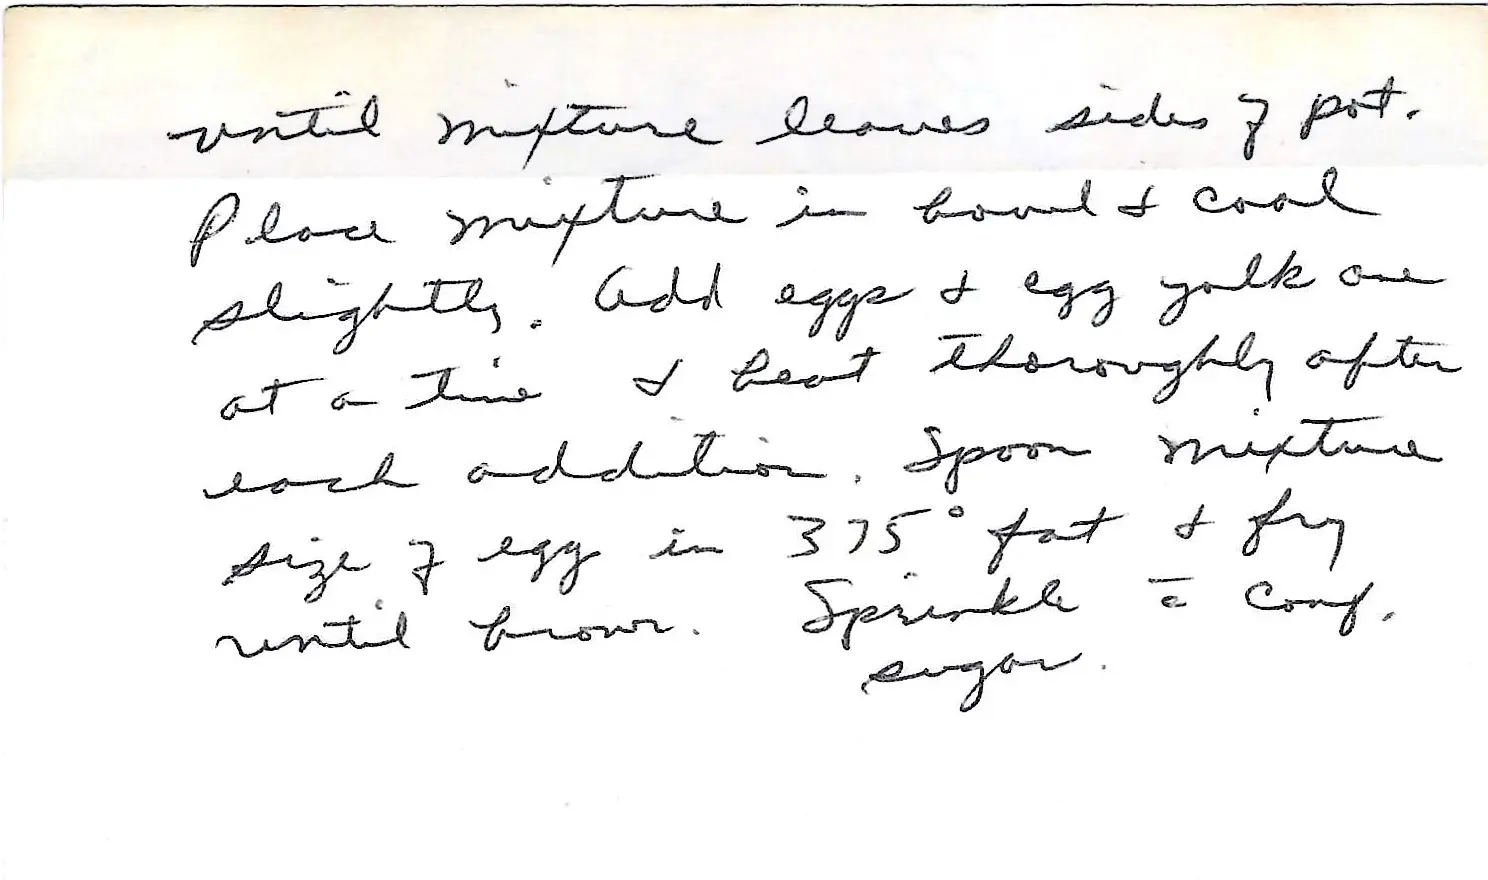 until mixture leaves sides of pot.
Place mixture in bowl & cool
slightly. Add eggs & egg yolk one
at a time & beat thoroughly after
each addition. Spoon mixture
size of egg in 375° fat & fry
until brown. Sprinkle c̄ conf.
sugar.